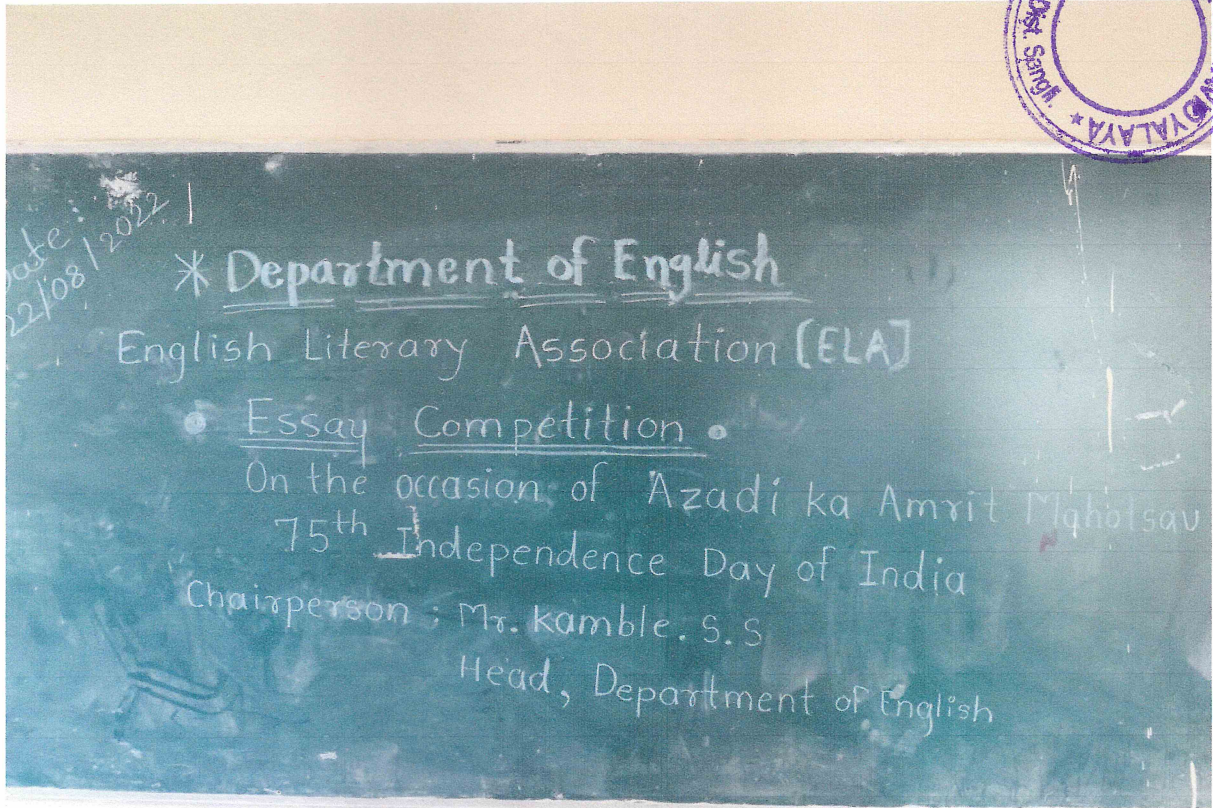 Dist. Sangli.
★ VIDYALAYA
Date :
22/08/2022
* Department of English
English Literary Association [ELA]
• Essay Competition •
On the occasion of Azadi ka Amrit Mahotsav
75th Independence Day of India
Chairperson : Mr. Kamble. S. S
Head, Department of English